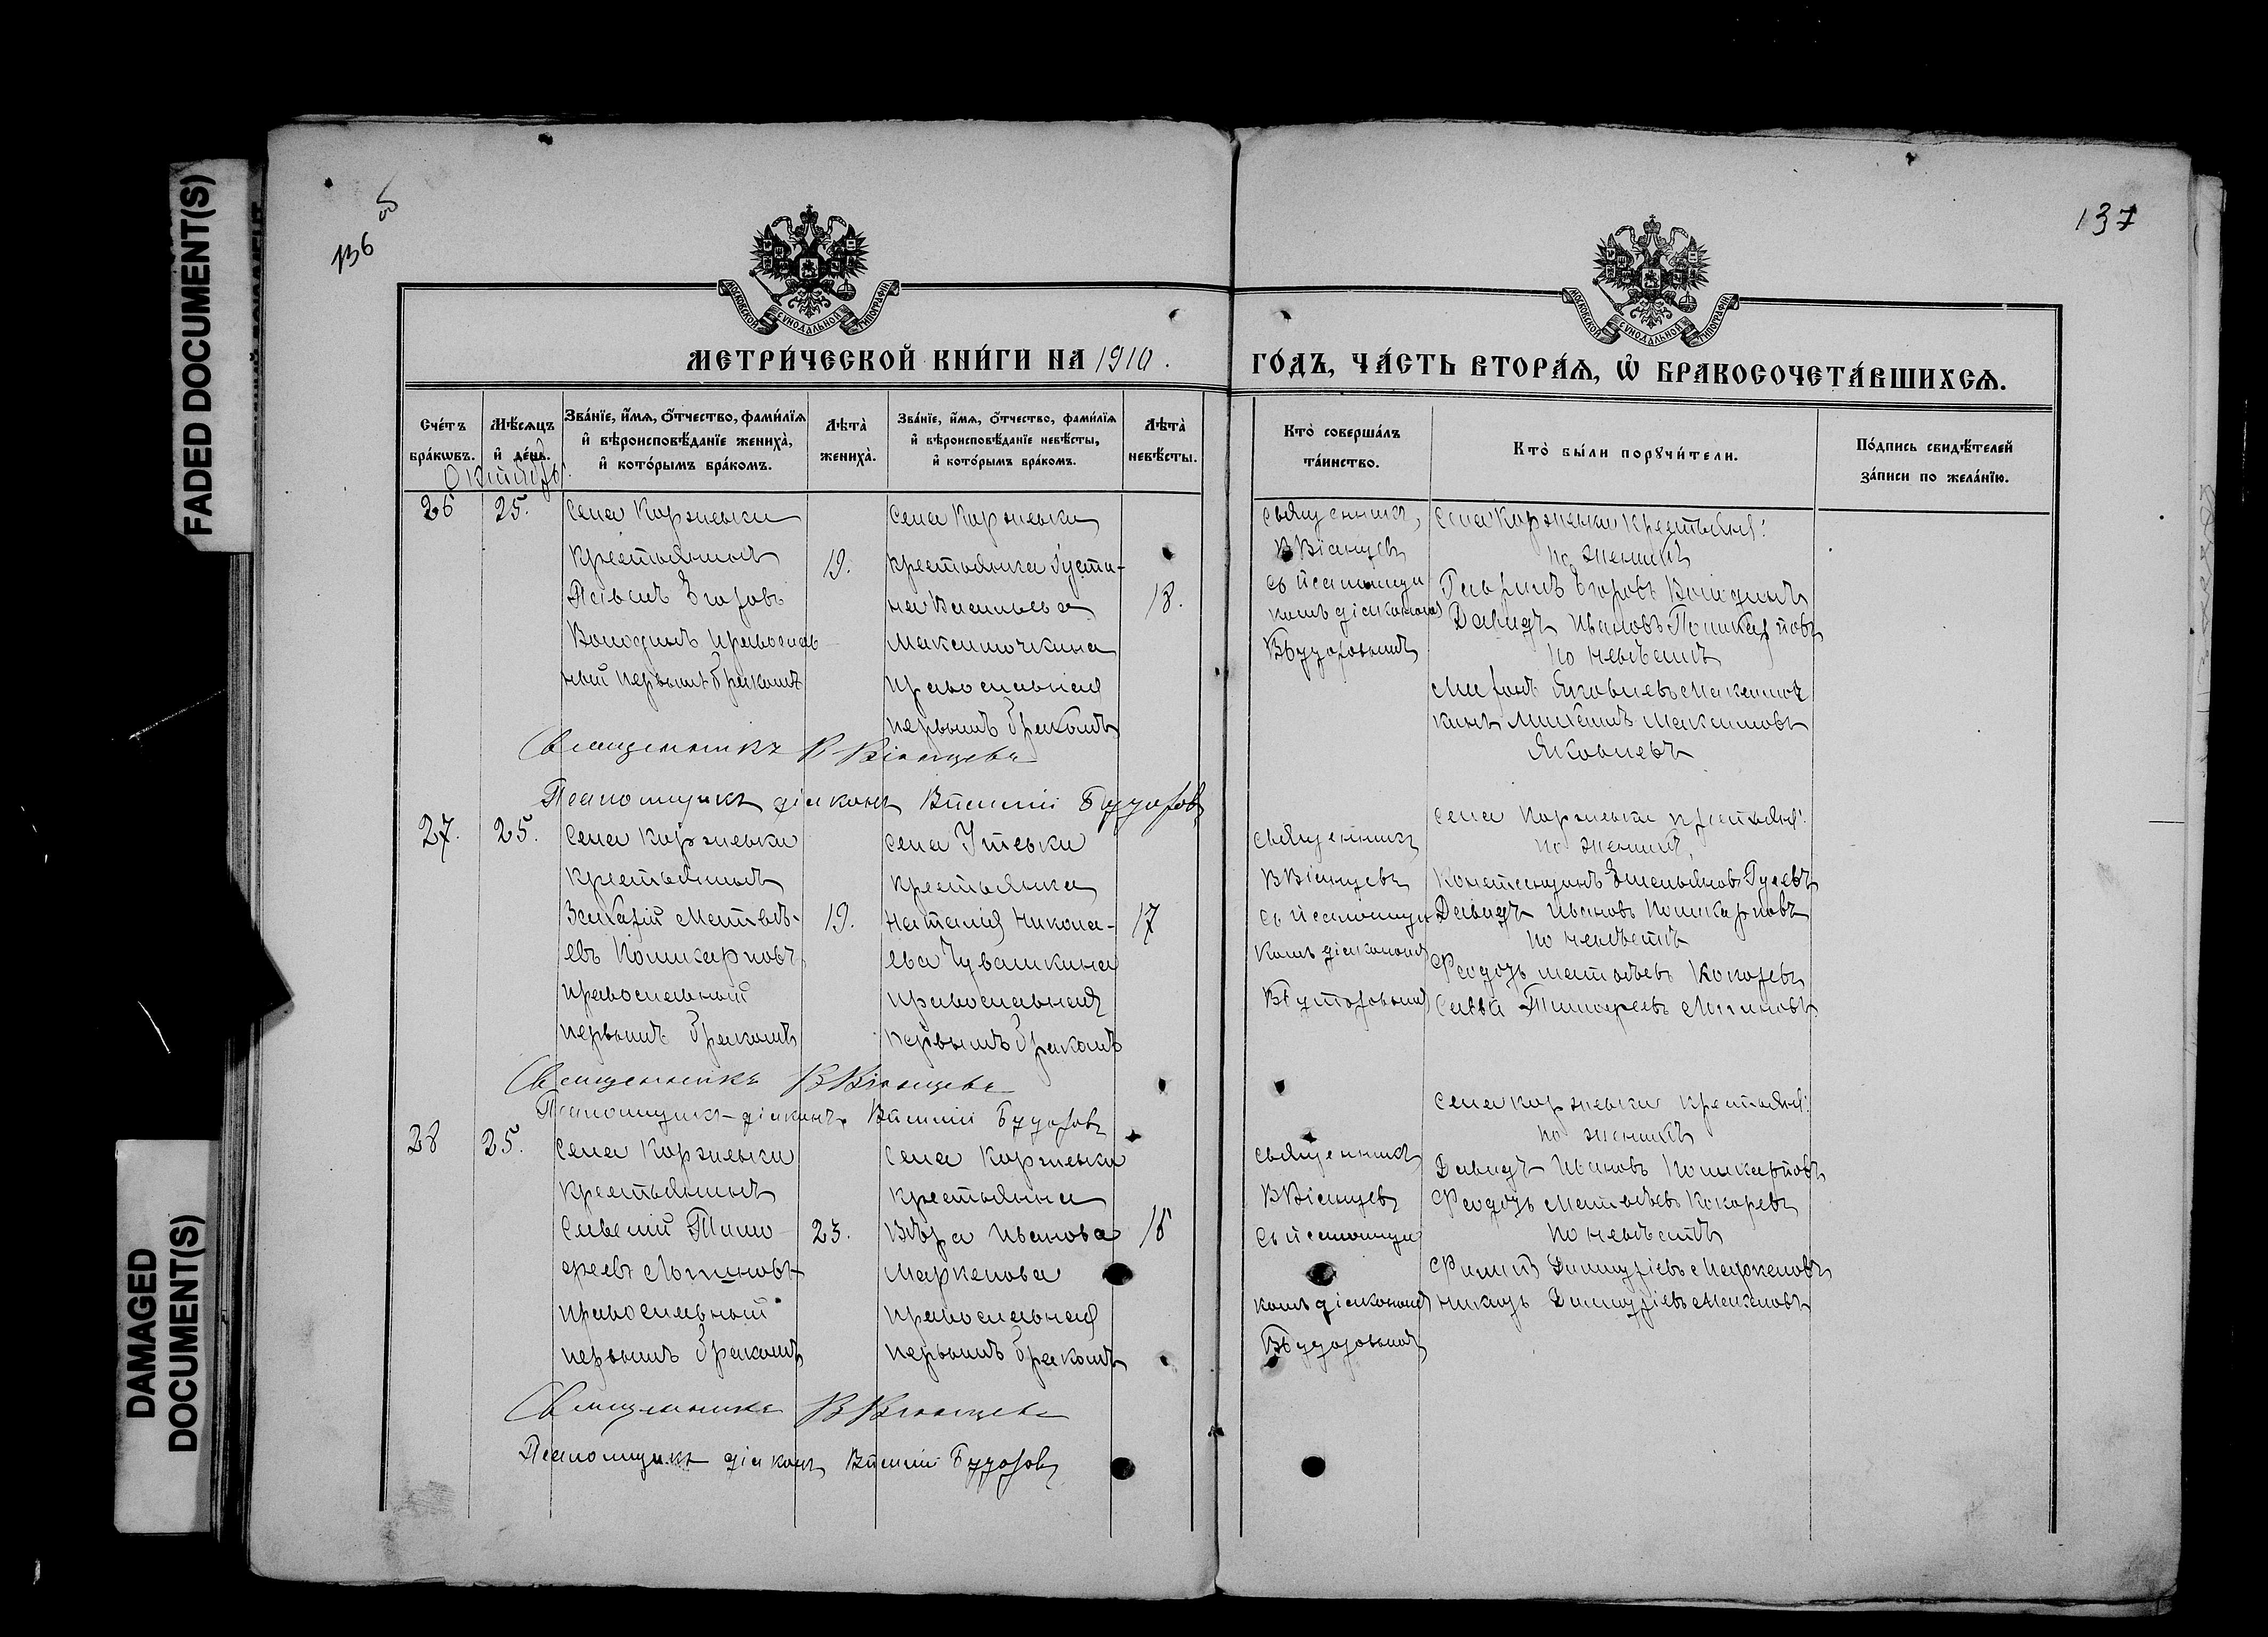 FADED DOCUMENT(S)
DAMAGED
DOCUMENT(S)
136 об
137
МОСКОВСКОЙ СУНОДАЛЬНОЙ ТИПОГРАФІИ
МОСКОВСКОЙ СУНОДАЛЬНОЙ ТИПОГРАФІИ
МЕТРИ́ЧЕСКОЙ КНИ́ГИ НА 1910.
ГО́ДЪ, ЧА́СТЬ ВТОРА́Ѧ, Ѡ҆ БРАКОСОЧЕТА́ВШИХСѦ.
Сче́тъ
бра́кѡвъ.
Мѣ́сѧцъ
и҆ де́нь.
Зва́нїе, и҆́мѧ, ѻ҆́тчество, фами́лїѧ
и҆ вѣроисповѣ́данїе жениха̀,
и҆ кото́рымъ бра́комъ.
Лѣ́та
жениха̀.
Зва́нїе, и҆́мѧ, ѻ҆́тчество, фами́лїѧ
и҆ вѣроисповѣ́данїе невѣ́сты,
и҆ кото́рымъ бра́комъ.
Лѣ́та
невѣ́сты.
Кто̀ соверша́лъ
та́инство.
Кто̀ бы́ли порꙋчи́тели.
По́дпись свидѣ́телей
за́писи по жела́нїю.
Октябрь.
26
25.
Села Коржевки
крестьянинъ
Павелъ Егоровъ
Володинъ православ
ный первымъ бракомъ
19.
Села Коржевки
крестьянка Іусти-
на Васильева
Максимочкина
православная
первымъ бракомъ
18.
Священникъ
съ псаломщи
комъ діакономъ
Села Коржевки крестьяне:
по женихѣ
Гавріилъ Егоровъ Володинъ
Давидъ Ивановъ Поликарповъ
по невѣстѣ
Яковлевъ Максимоч
кинъ Михаилъ Максимовъ
Яковлевъ
Священникъ В
Псаломщикъ діаконъ Василій
27.
25.
Села Коржевки
крестьянинъ
Матвѣ-
евъ Поликарповъ
православный
первымъ бракомъ
19.
Села Утевки
крестьянка
Наталія Никола-
ева Чувашкина
православная
первымъ бракомъ
17
Священникъ
съ псаломщи
комъ діакономъ
Села Коржевки крестьяне:
по женихѣ
Константинъ Емельяновъ Гусевъ
Давидъ Ивановъ Поликарповъ
по невѣстѣ
Ѳеодоръ Матвѣевъ Кокаревъ
Савва Тимоѳеевъ Логиновъ
Священникъ В
Псаломщикъ-діаконъ Василій
28
25.
Села Коржевки
крестьянинъ
Савелій Тимо
ѳеевъ Логиновъ
православный
первымъ бракомъ
23.
Села Коржевки
крестьянка
Вѣра Иванова
Маркелова
православная
первымъ бракомъ
18
Священникъ
съ псаломщи
комъ діакономъ
Села Коржевки крестьяне:
по женихѣ
Давидъ Ивановъ Поликарповъ
Ѳеодоръ Матвѣевъ Кокаревъ
по невѣстѣ
Филиппъ Димитріевъ Маркеловъ
Димитріевъ Маркеловъ
Священникъ В
Псаломщикъ діаконъ Василій